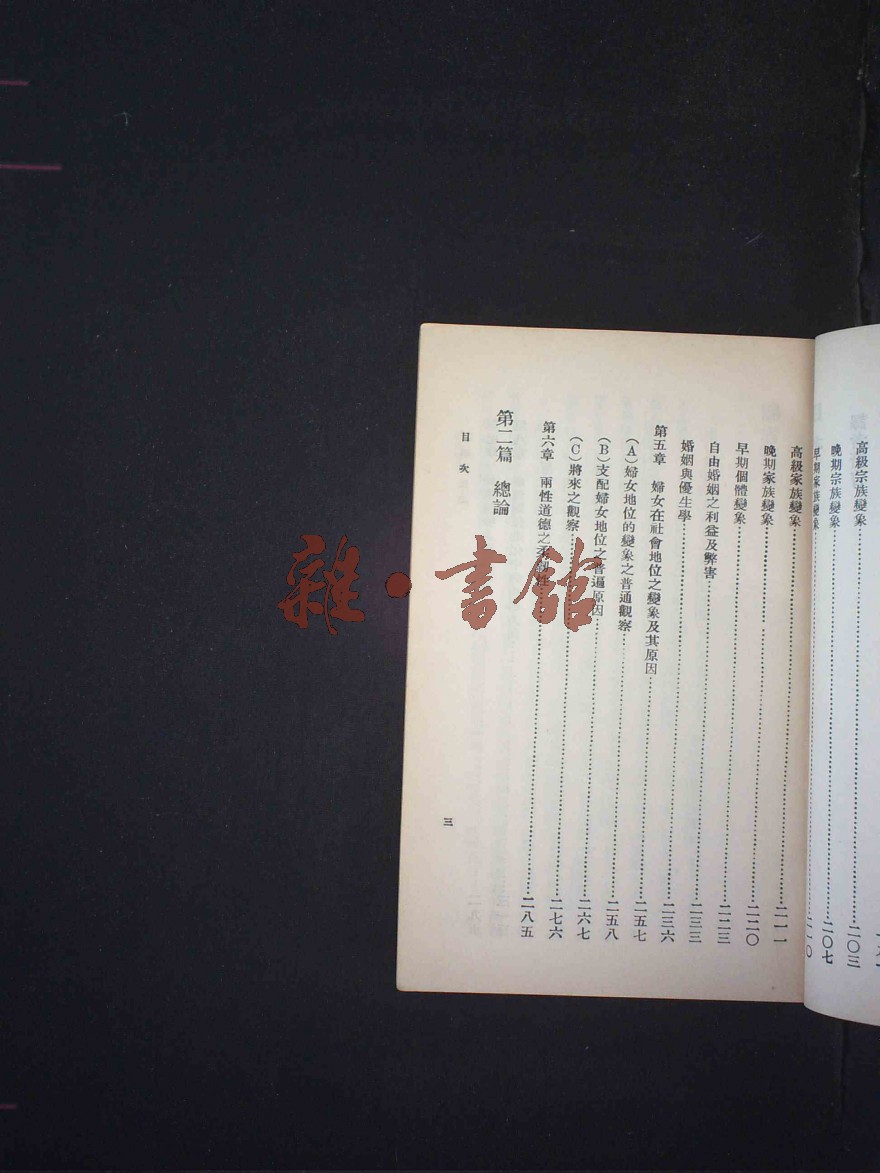 高級宗族變象……二〇三
晚期宗族變象……二〇七
早期家族變象……二一〇
高級家族變象……二一一
晚期家族變象……二二〇
早期個體變象……二二三
自由婚姻之利益及弊害……二三三
婚姻與優生學……二三六
第五章 婦女在社會地位之變象及其原因……二五七
(A)婦女地位的變象之普通觀察……二五八
(B)支配婦女地位之普遍原因……二六七
(C)將來之觀察……二七六
第六章 兩性道德之……二八五
第二篇 總論
目次
三
雜·書館